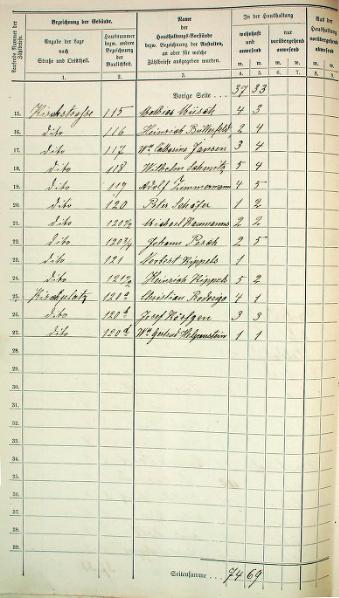 Laufende Nummer der Zählbriefe.
Bezeichnung der Gebäude.
Angabe der Lage nach Straße und Ortsteil.
Hausnummer bzw. andere Bezeichnung der Baulichkeit.
Name der Haushaltungs-Vorstände bzw. Bezeichnung der Anstalten, an oder für welche Zählbriefe ausgegeben wurden.
In der Haushaltung
wohnhaft und anwesend
nur vorübergehend anwesend
Aus der Haushaltung vorübergehend abwesend
m. w. m. w. m. w.
1. 2. 3. 4. 5. 6. 7. 8. 9.
Vorige Seite ... 37 33
15. Kirchstrasse 115 Mathias 4 3
16. dito 116 Heinrich Butterfeld 2 4
17. dito 117 Ww. Catharina Jansen 3 4
18. dito 118 Wilhelm Schmitz 5 4
19. dito 119 Adolf Zimmermann 4 5
20. dito 120 Peter Schäfer 1 2
21. dito Michael Hermanns 2 2
22. dito Johann 2 5
23. dito 121 Norbert Hippels 1
24. dito Heinrich Hippels 5 2
25. Kirchplatz 120a Christian Roderigo 4 1
26. dito 120b Josef 3 3
27. dito 120d Ww. Gertrud 1 1
28.
29.
30.
31.
32.
33.
34.
35.
36.
37.
38.
39.
Seitensumme ... 74 69